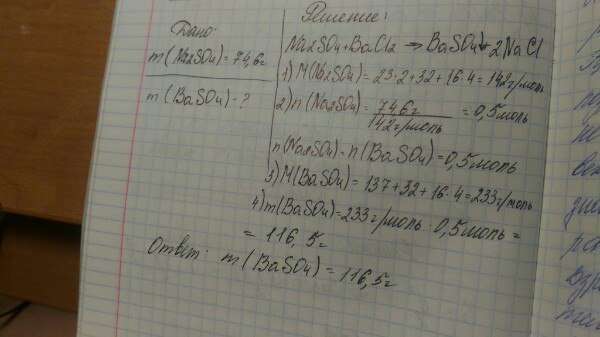 Дано:
m(Na2SO4)=74,6г
m(BaSO4)-?
Решение:
Na2SO4+BaCl2 => BaSO4↓+2NaCl
1) M(Na2SO4)=23·2+32+16·4=142г/моль
2) n(Na2SO4)= 74,6г / 142г/моль = 0,5моль
n(Na2SO4)=n(BaSO4)=0,5моль
3) M(BaSO4)=137+32+16·4=233г/моль
4) m(BaSO4)=233г/моль·0,5моль=
=116,5г
Ответ: m(BaSO4)=116,5г